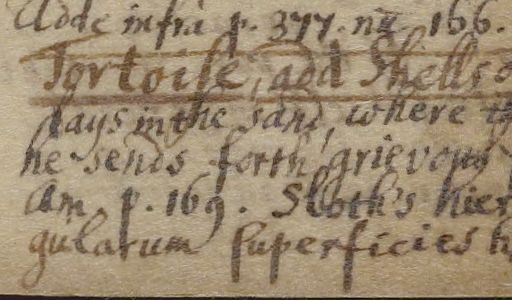 Adde infra p. 377. nü. 166.
Tortoise, add Shells
days in the sand, where
he sends forth grievous
Am. p. 169. Sloth's
gularum superficies